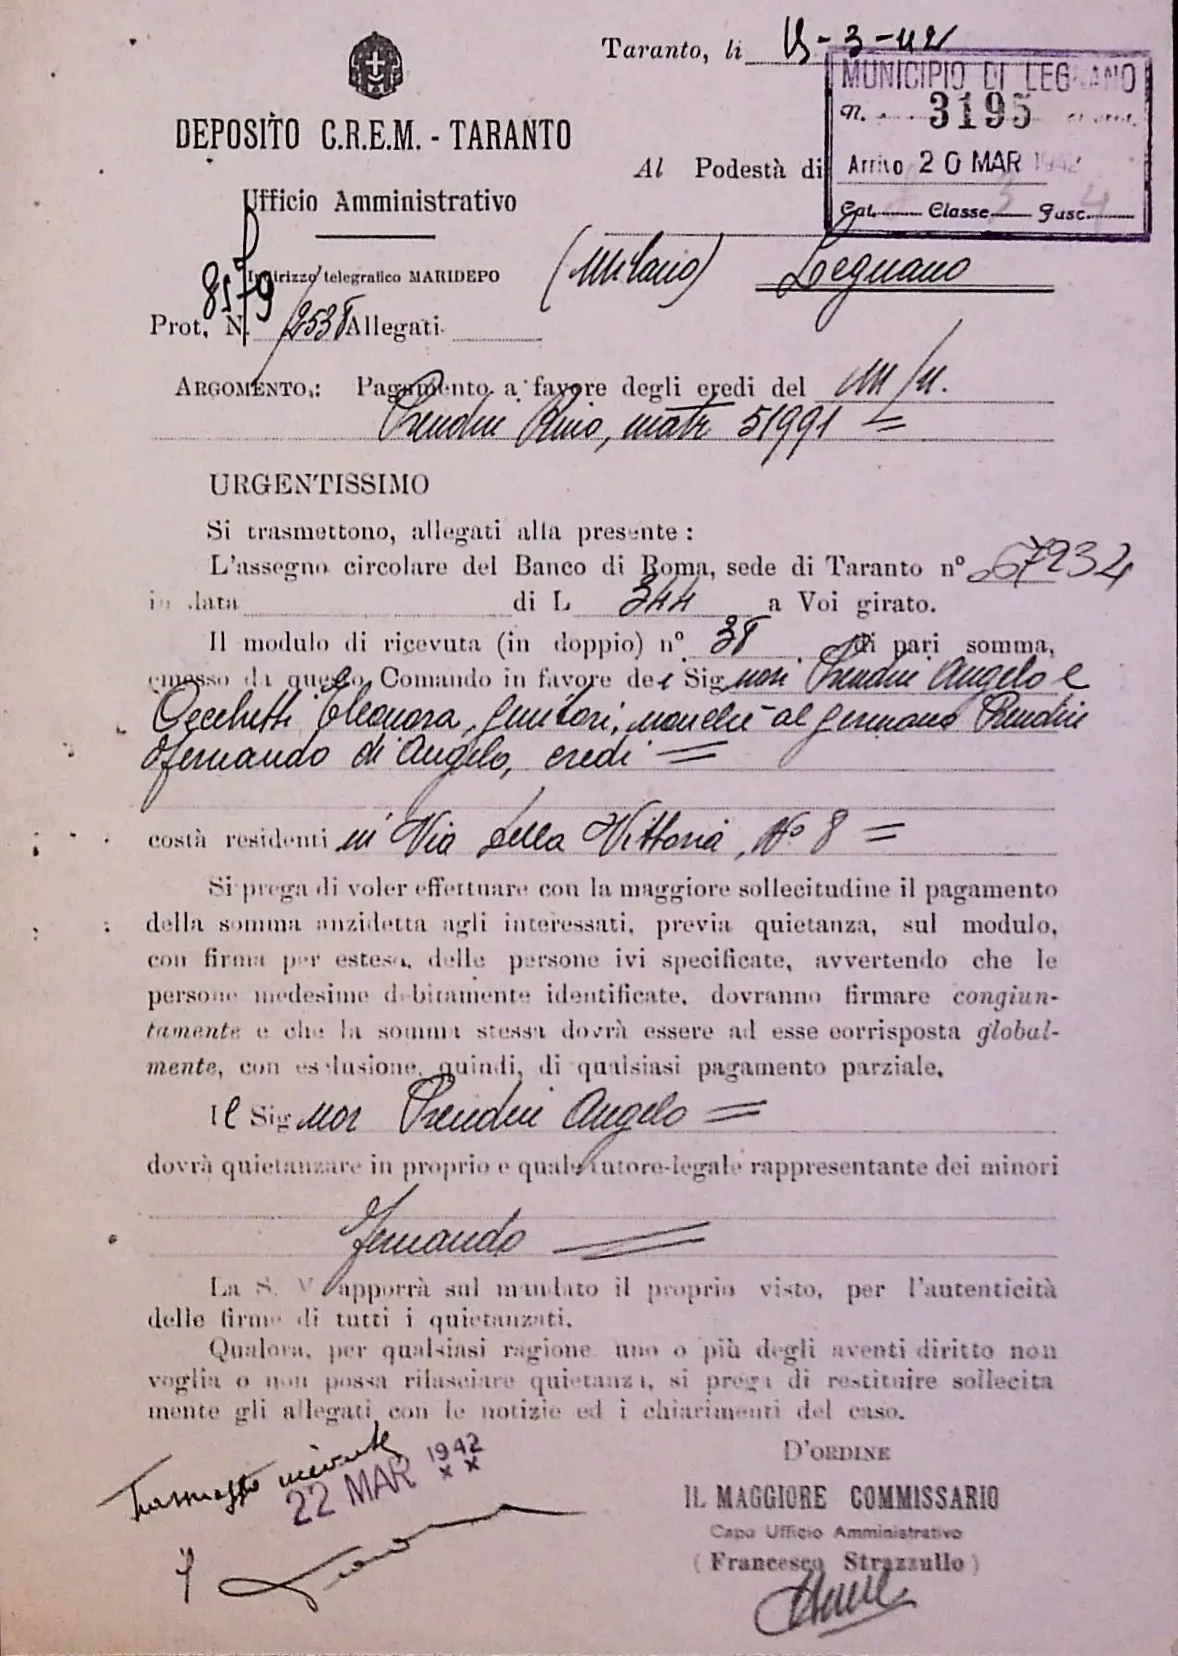 Taranto, li 13-3-42
MUNICIPIO DI LEGNANO
N. 3195
Arrivo 20 MAR 1942
Cat. Classe 3 Fasc. 4
DEPOSITO C.R.E.M. - TARANTO
Al Podestà di
Ufficio Amministrativo
(Milano) Legnano
Indirizzo telegrafico MARIDEPO
8579
Prot. N. /2538 Allegati
ARGOMENTO.: Pagamento a favore degli eredi del
Rino, matr 51991 =
URGENTISSIMO
Si trasmettono, allegati alla presente :
L'assegno circolare del Banco di Roma, sede di Taranto n° 67234
in data di L 344 a Voi girato.
Il modulo di ricevuta (in doppio) n° 38 di pari somma,
emesso da questo Comando in favore dei Signori Prendin Angelo e
Cecchetti Eleonora, genitori, nonchè al germano Prendin
Fernando di Angelo, eredi =
costà residenti in Via della Vittoria, N° 8 =
Si prega di voler effettuare con la maggiore sollecitudine il pagamento
della somma anzidetta agli interessati, previa quietanza, sul modulo,
con firma per estesa, delle persone ivi specificate, avvertendo che le
persone medesime debitamente identificate, dovranno firmare congiun-
tamente e che la somma stessa dovrà essere ad esse corrisposta global-
mente, con esclusione, quindi, di qualsiasi pagamento parziale.
Il Signor Prendin Angelo =
dovrà quietanzare in proprio e quale tutore-legale rappresentante dei minori
Fernando =
La S. V. apporrà sul mandato il proprio visto, per l'autenticità
delle firme di tutti i quietanzati.
Qualora, per qualsiasi ragione uno o più degli aventi diritto non
voglia o non possa rilasciare quietanza, si prega di restituire sollecita
mente gli allegati con le notizie ed i chiarimenti del caso.
D'ORDINE
22 MAR 1942
IL MAGGIORE COMMISSARIO
Capo Ufficio Amministrativo
(Francesco Strazzullo)